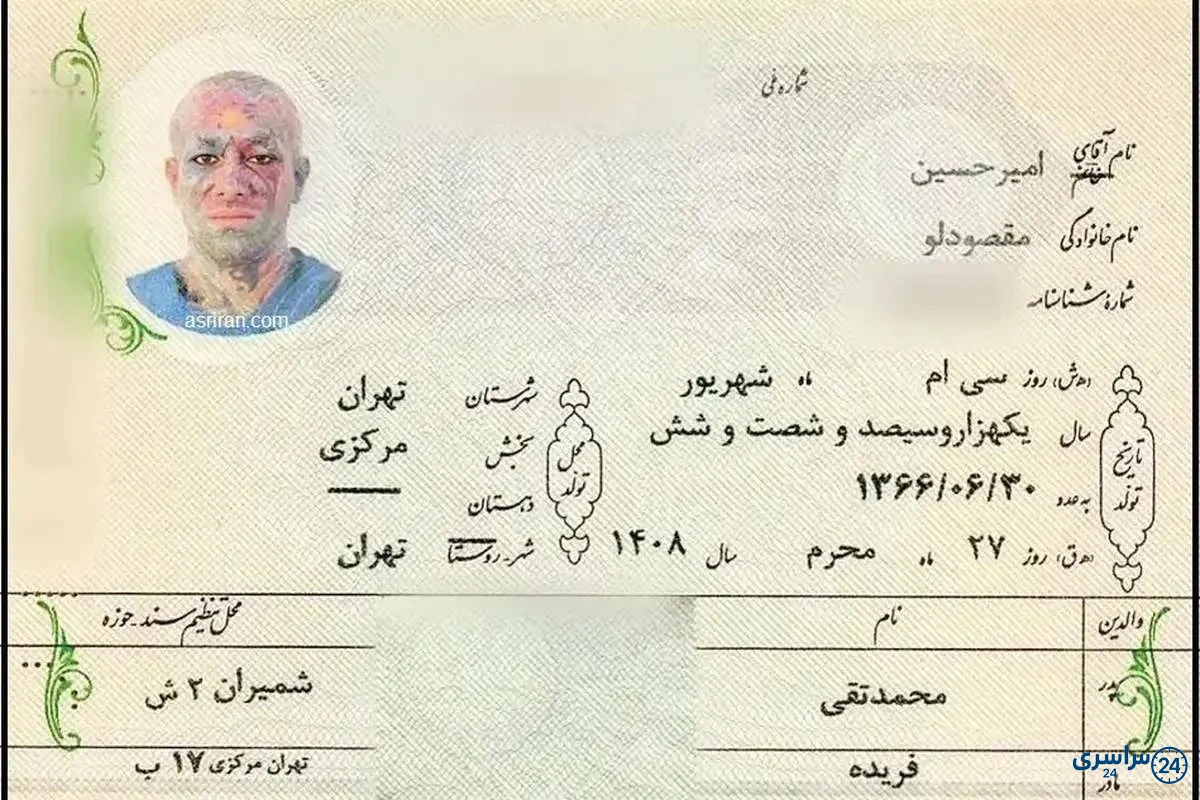 شماره ملی
نام آقای خانم امیرحسین
نام خانوادگی مقصودلو
شمارهٔ شناسنامه
تاریخ تولد
(ه‍.ش) روز سی ام ماه شهریور
سال یکهزاروسیصد و شصت و شش
به عدد ۱۳۶۶/۰۶/۳۰
(ه‍.ق) روز ۲۷ ماه محرم سال ۱۴۰۸
محل تولد
شهرستان تهران
بخش مرکزی
دهستان
شهر-روستا تهران
والدین نام محل تنظیم سند-حوزه
پدر محمدتقی شمیران ۲ ش
مادر فریده تهران مرکزی ۱۷ ب
asriran.com
سراسری 24
24